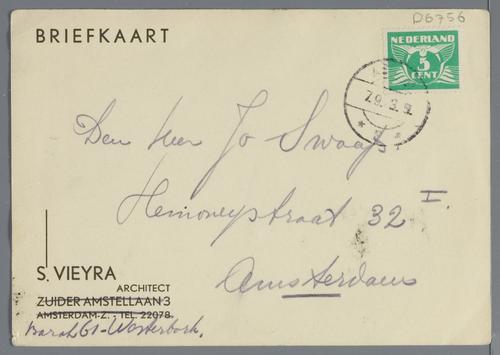 D6756
BRIEFKAART
NEDERLAND
5
CENT
Den Heer Jo Swaaf
Hemonystraat 32 I.
Amsterdam
S. VIEYRA
ARCHITECT
ZUIDER AMSTELLAAN 3
AMSTERDAM-Z. - TEL. 22078
Barak 61 - Westerbork.